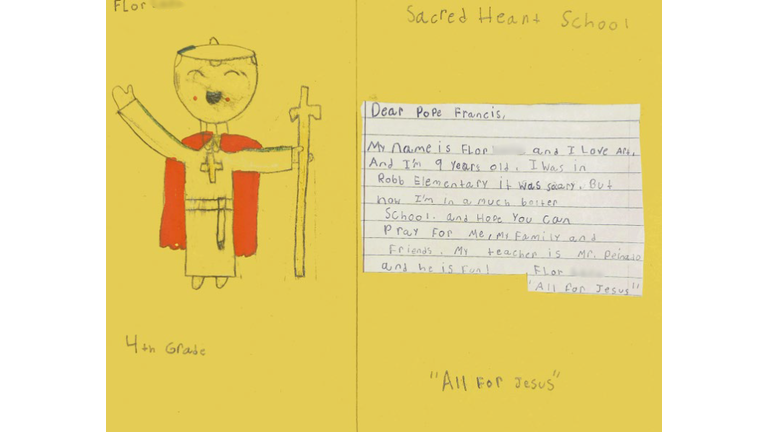 FLor
4th Grade
Sacred Heart School
Dear Pope Francis,
My name is FLor and I Love Art.
And I'm 9 years old. I was in
Robb Elementary it was scary. But
now I'm in a much better
School. and Hope you can
Pray for me, my family and
Friends. My teacher is Mr.
and he is fun! FLor
"All for Jesus"
"All For Jesus"